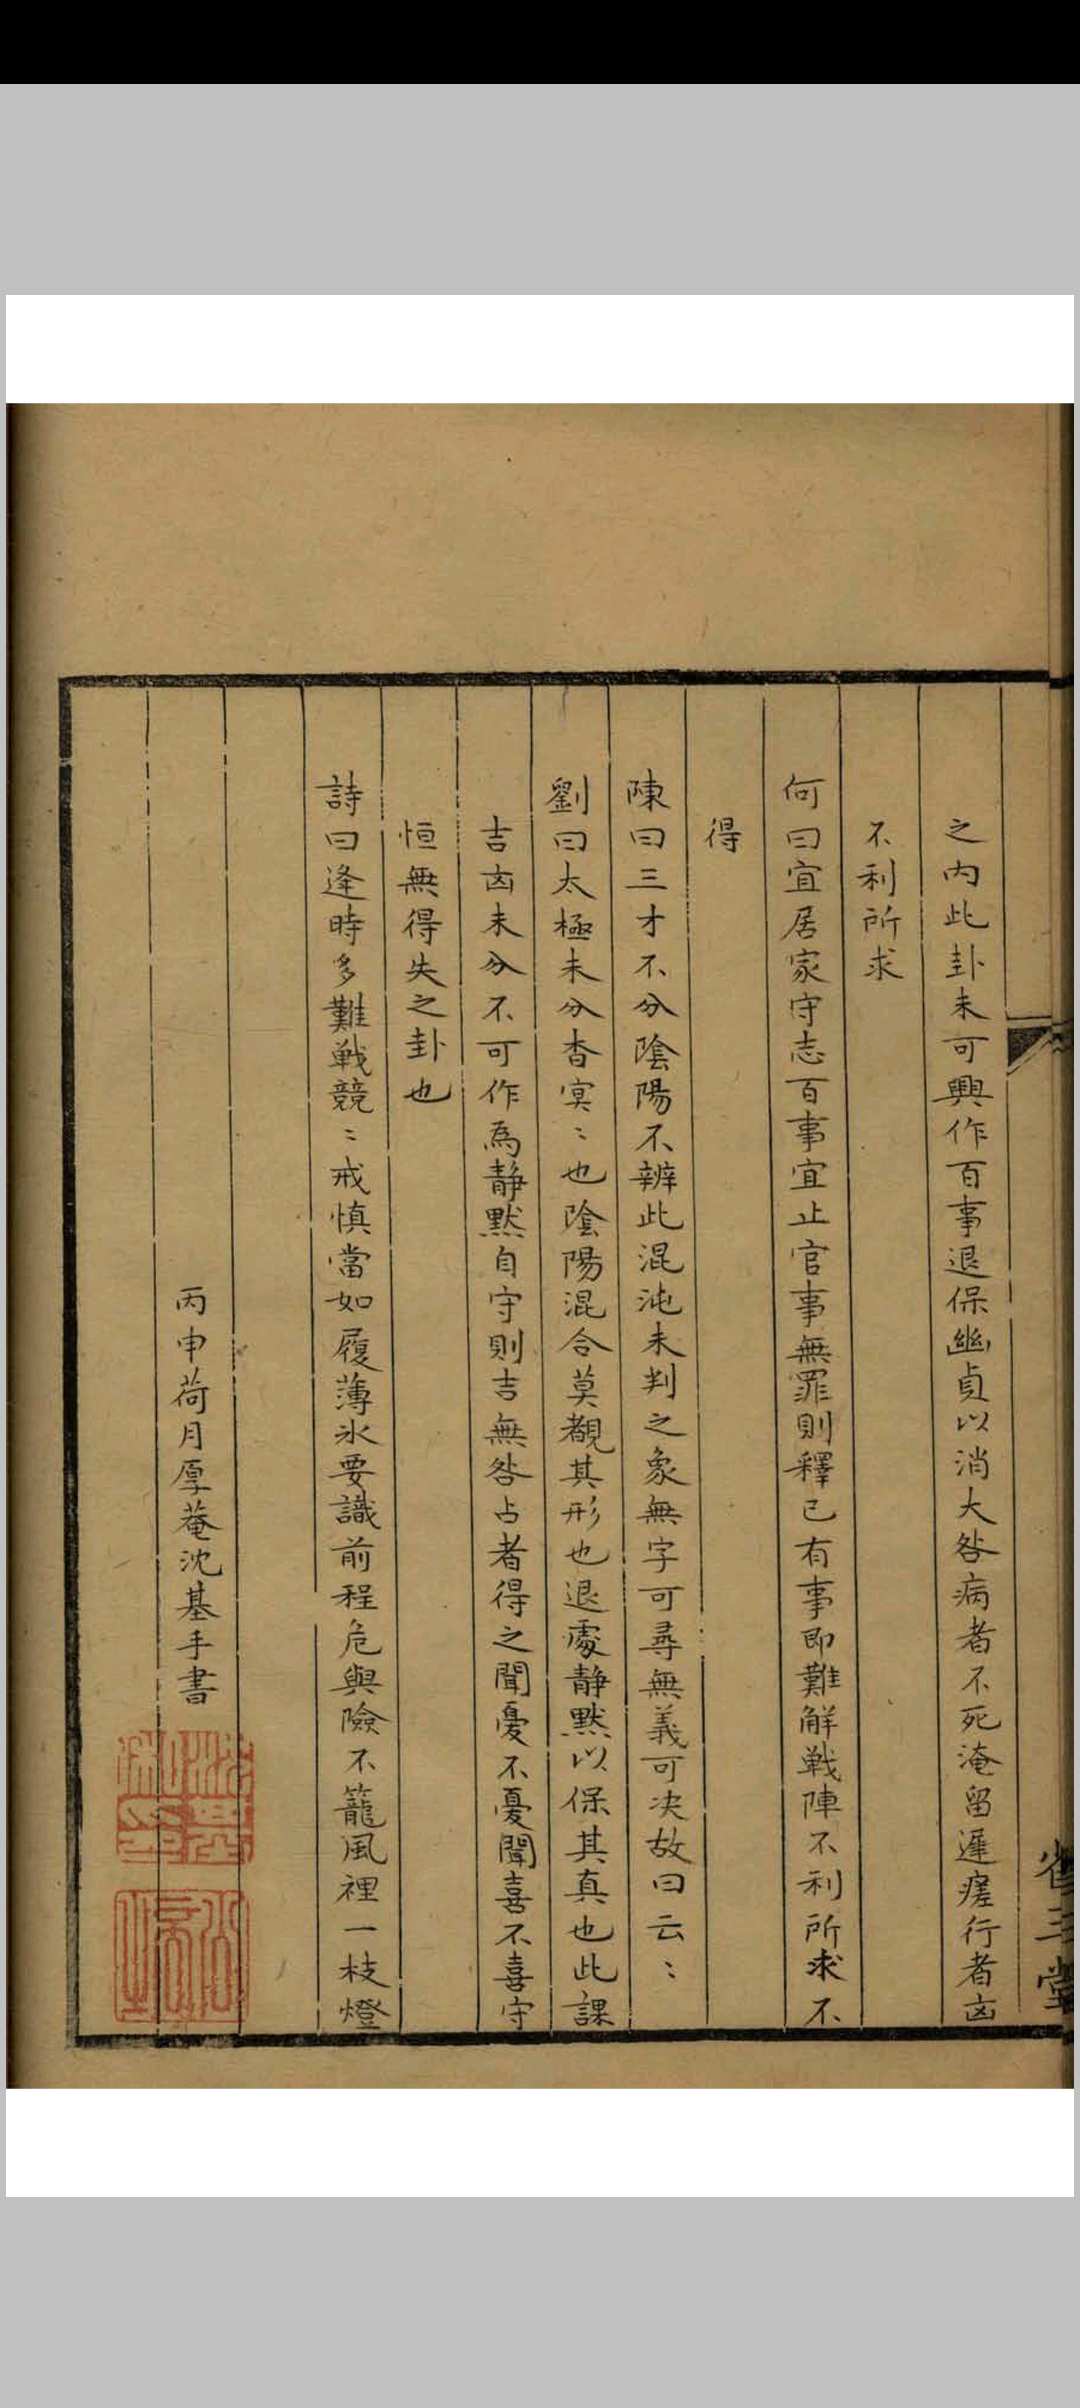 之内此卦未可興作百事退保幽貞以消大咎病者不死淹留遲瘥行者凶
不利所求
何曰宜居家守志百事宜止官事無罪則釋已有事即難解戰陣不利所求不
得
陳曰三才不分陰陽不辨此混沌未判之象無字可尋無義可决故曰云〻
劉曰太極未分杳冥〻也陰陽混合莫覩其形也退處静黙以保其真也此課
吉凶未分不可作為静黙自守則吉無咎占者得之聞憂不憂聞喜不喜守
恒無得失之卦也
詩曰逢時多難戰競〻戒慎當如履薄氷要識前程危與險不籠風裡一枝燈
丙申荷月厚菴沈基手書